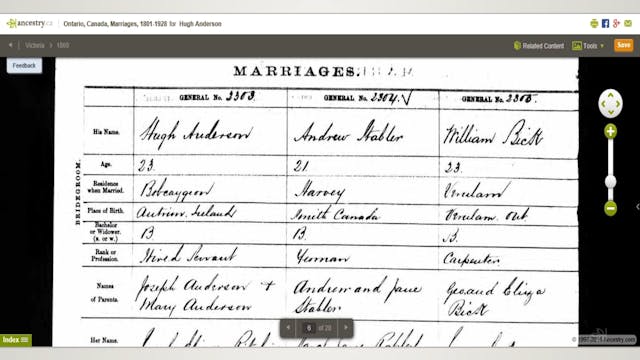 ancestry.ca
Ontario, Canada, Marriages, 1801-1928 for Hugh Anderson
Victoria
1869
Related Content
Tools
Save
Feedback
MARRIAGES.
GENERAL No. 2303
GENERAL No. 2304
GENERAL No. 2305.
BRIDEGROOM.
His Name.
Hugh Anderson
Andrew Stabler
William Bick
Age.
23
21
23
Residence when Married.
Bobcaygeon
Harvey
Verulam
Place of Birth.
Antrim Ireland
Smith Canada
Verulam Ont
Bachelor or Widower (B. or W.)
B
B.
B.
Rank or Profession.
Hired Servant
Yeoman
Carpenter
Names of Parents.
Joseph Anderson +
Mary Anderson
Andrew and Jane
Stabler
Geo and Eliza
Bick
Her Name
6 of 20
Index